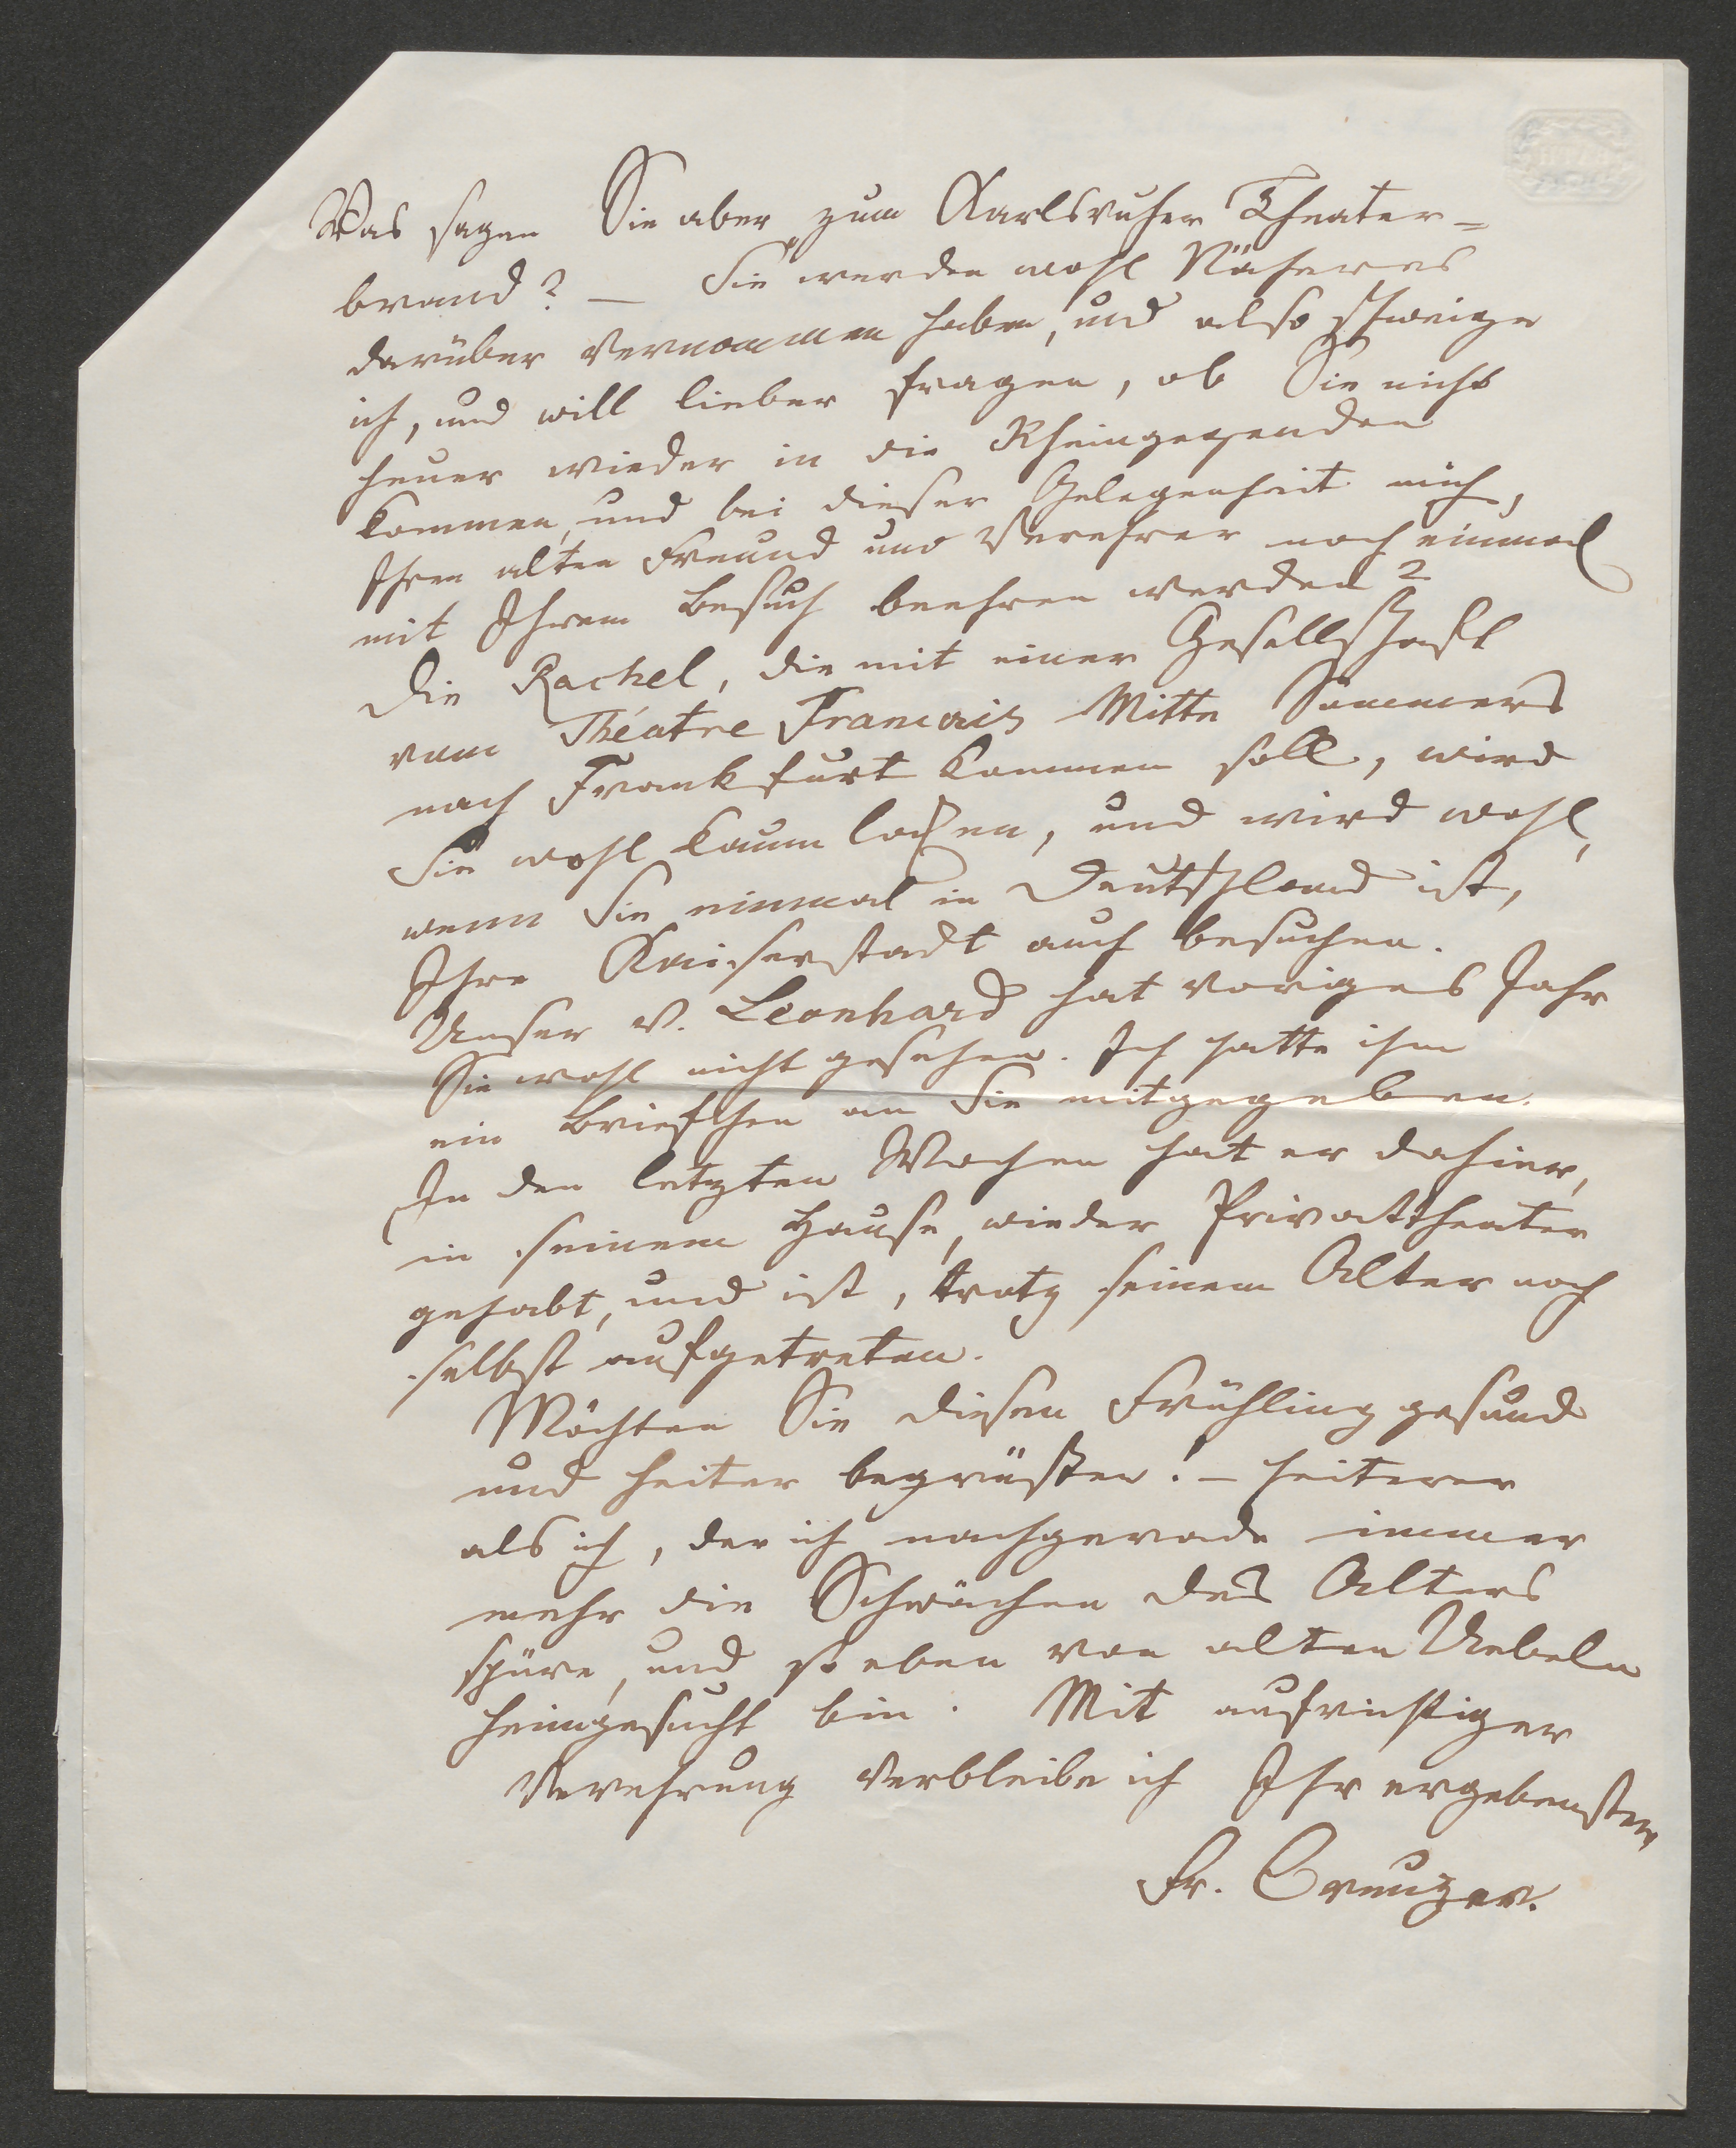 Was sagen Sie aber zum Karlsruher Theater-
brand? — Sie werden wohl Näheres
darüber vernommen haben, und also schweige
ich, und will lieber fragen, ob Sie nicht
heuer wieder in die Rheingegenden
kommen, und bei dieser Gelegenheit mich,
Ihren alten Freund und Verehrer noch einmal
mit Ihrem Besuch beehren werden?
Die Rachel, die mit einer Gesellschaft
vom Théatre Francais Mitte Sommers
nach Frankfurt kommen soll, wird
Sie wohl kaum locken, und wird wohl,
wenn Sie einmal in Deutschland ist,
Ihre Kaiserstadt auch besuchen.
Unser v. Leonhard hat voriges Jahr
Sie wohl nicht gesehen. Ich hatte ihm
ein Briefchen an Sie mitgegeben.
In den letzten Wochen hat er dahier,
in seinem Hause, wieder Privattheater
gehabt, und ist, trotz seinem Alter noch
selbst aufgetreten.
Möchten Sie diesen Frühling gesund
und heiter begrüßen! — heiterer
als ich, der ich nachgerade immer
mehr die Schwächen des Alters
spüre, und so eben von alten Uebeln
heimgesucht bin. Mit aufrichtiger
Verehrung verbleibe ich Ihr ergebenster
Fr. Creuzer.